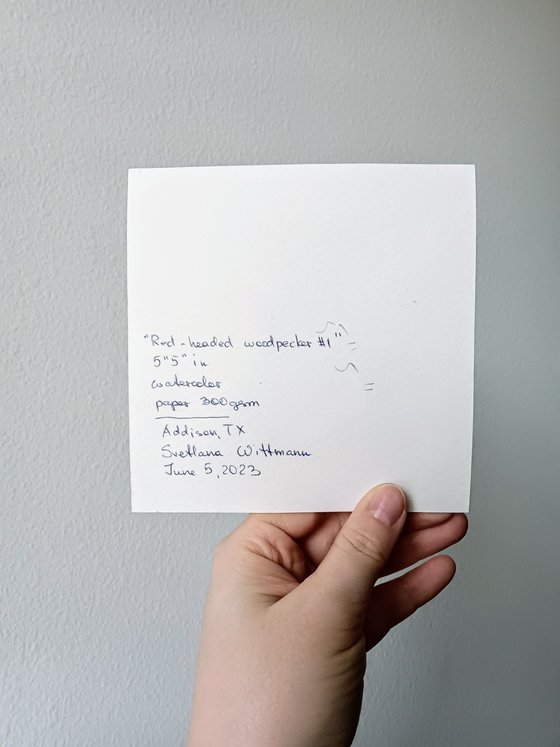 "Red-headed woodpecker #1"
5"5" in
watercolor
paper 300gsm
Addison, TX
Svetlana Wittmann
June 5, 2023